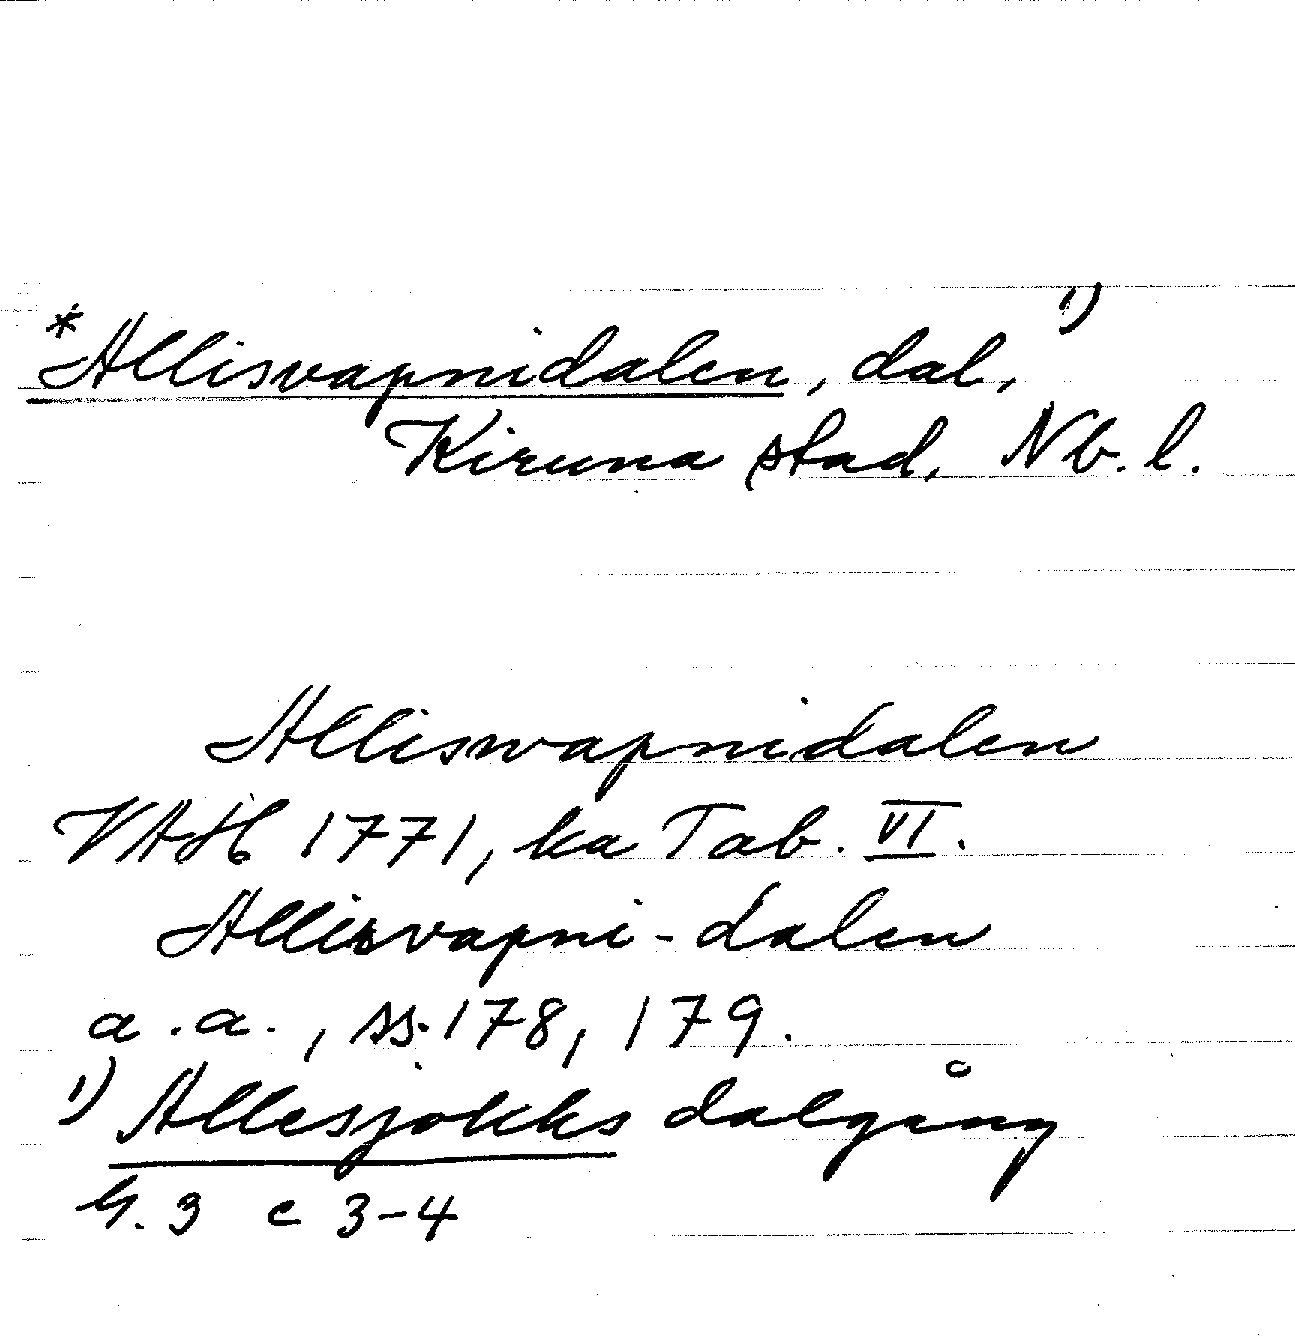 *Allisvapnidalen, dal, 1)
Kiruna stad, Nb. l.
Alliswapnidalen
VAH 1771, ka Tab. VI.
Allisvapni-dalen
a.a., ss. 178, 179.
1) Allesjokks dalgång
G. 3 c 3-4